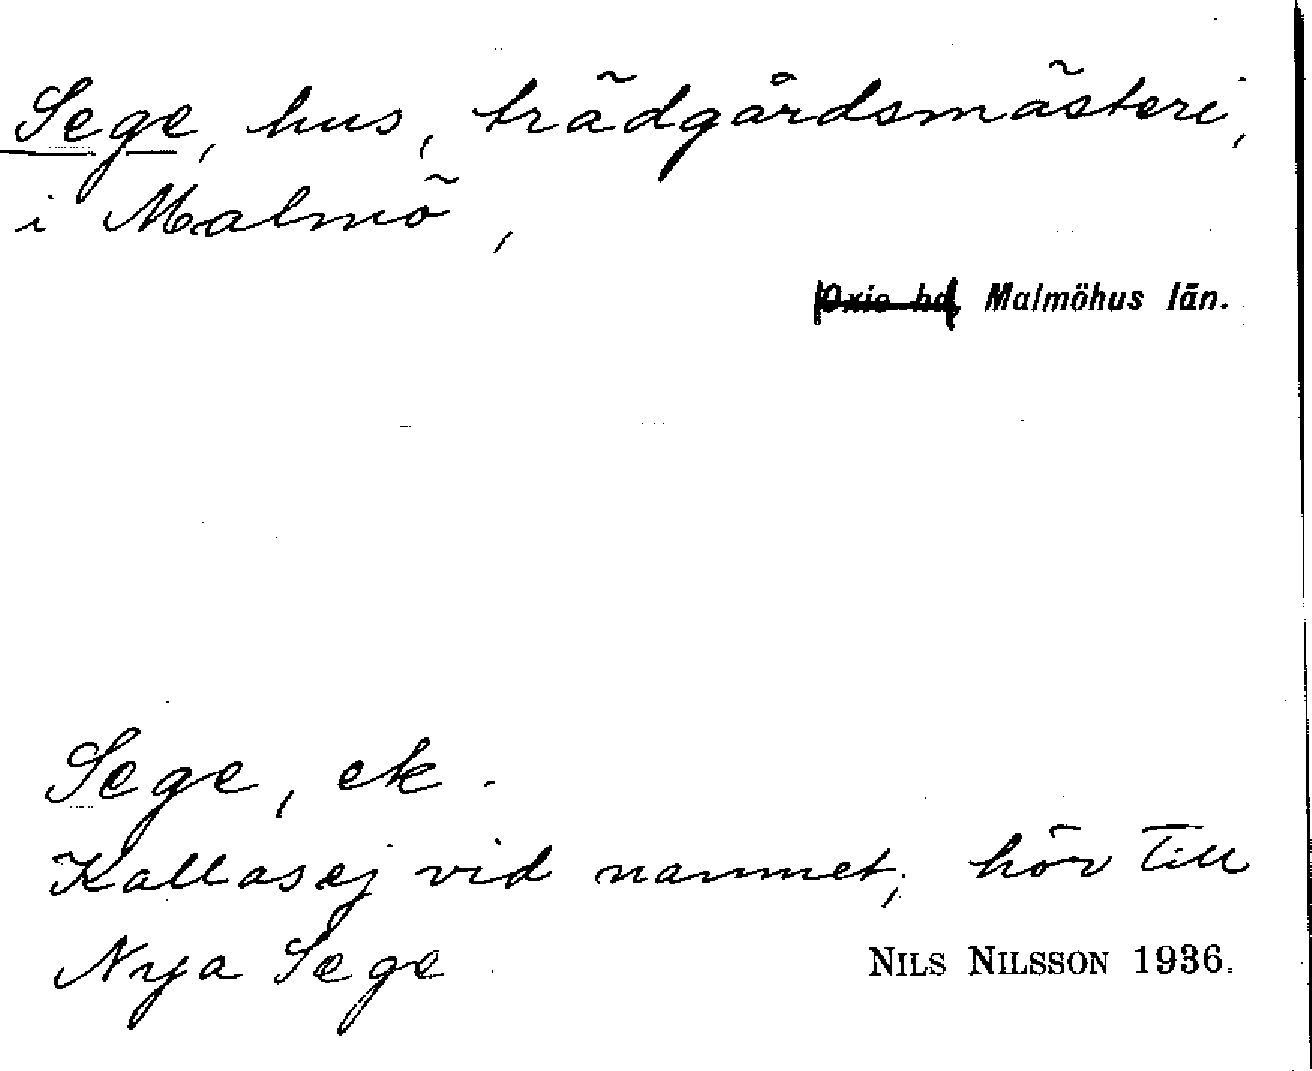 Sege, hus, trädgårdsmästeri,
i Malmö,
Oxie hd, Malmöhus län.
Sege, ek.
Kallas ej vid namnet, hör till
Nya Sege
NILS NILSSON 1936.